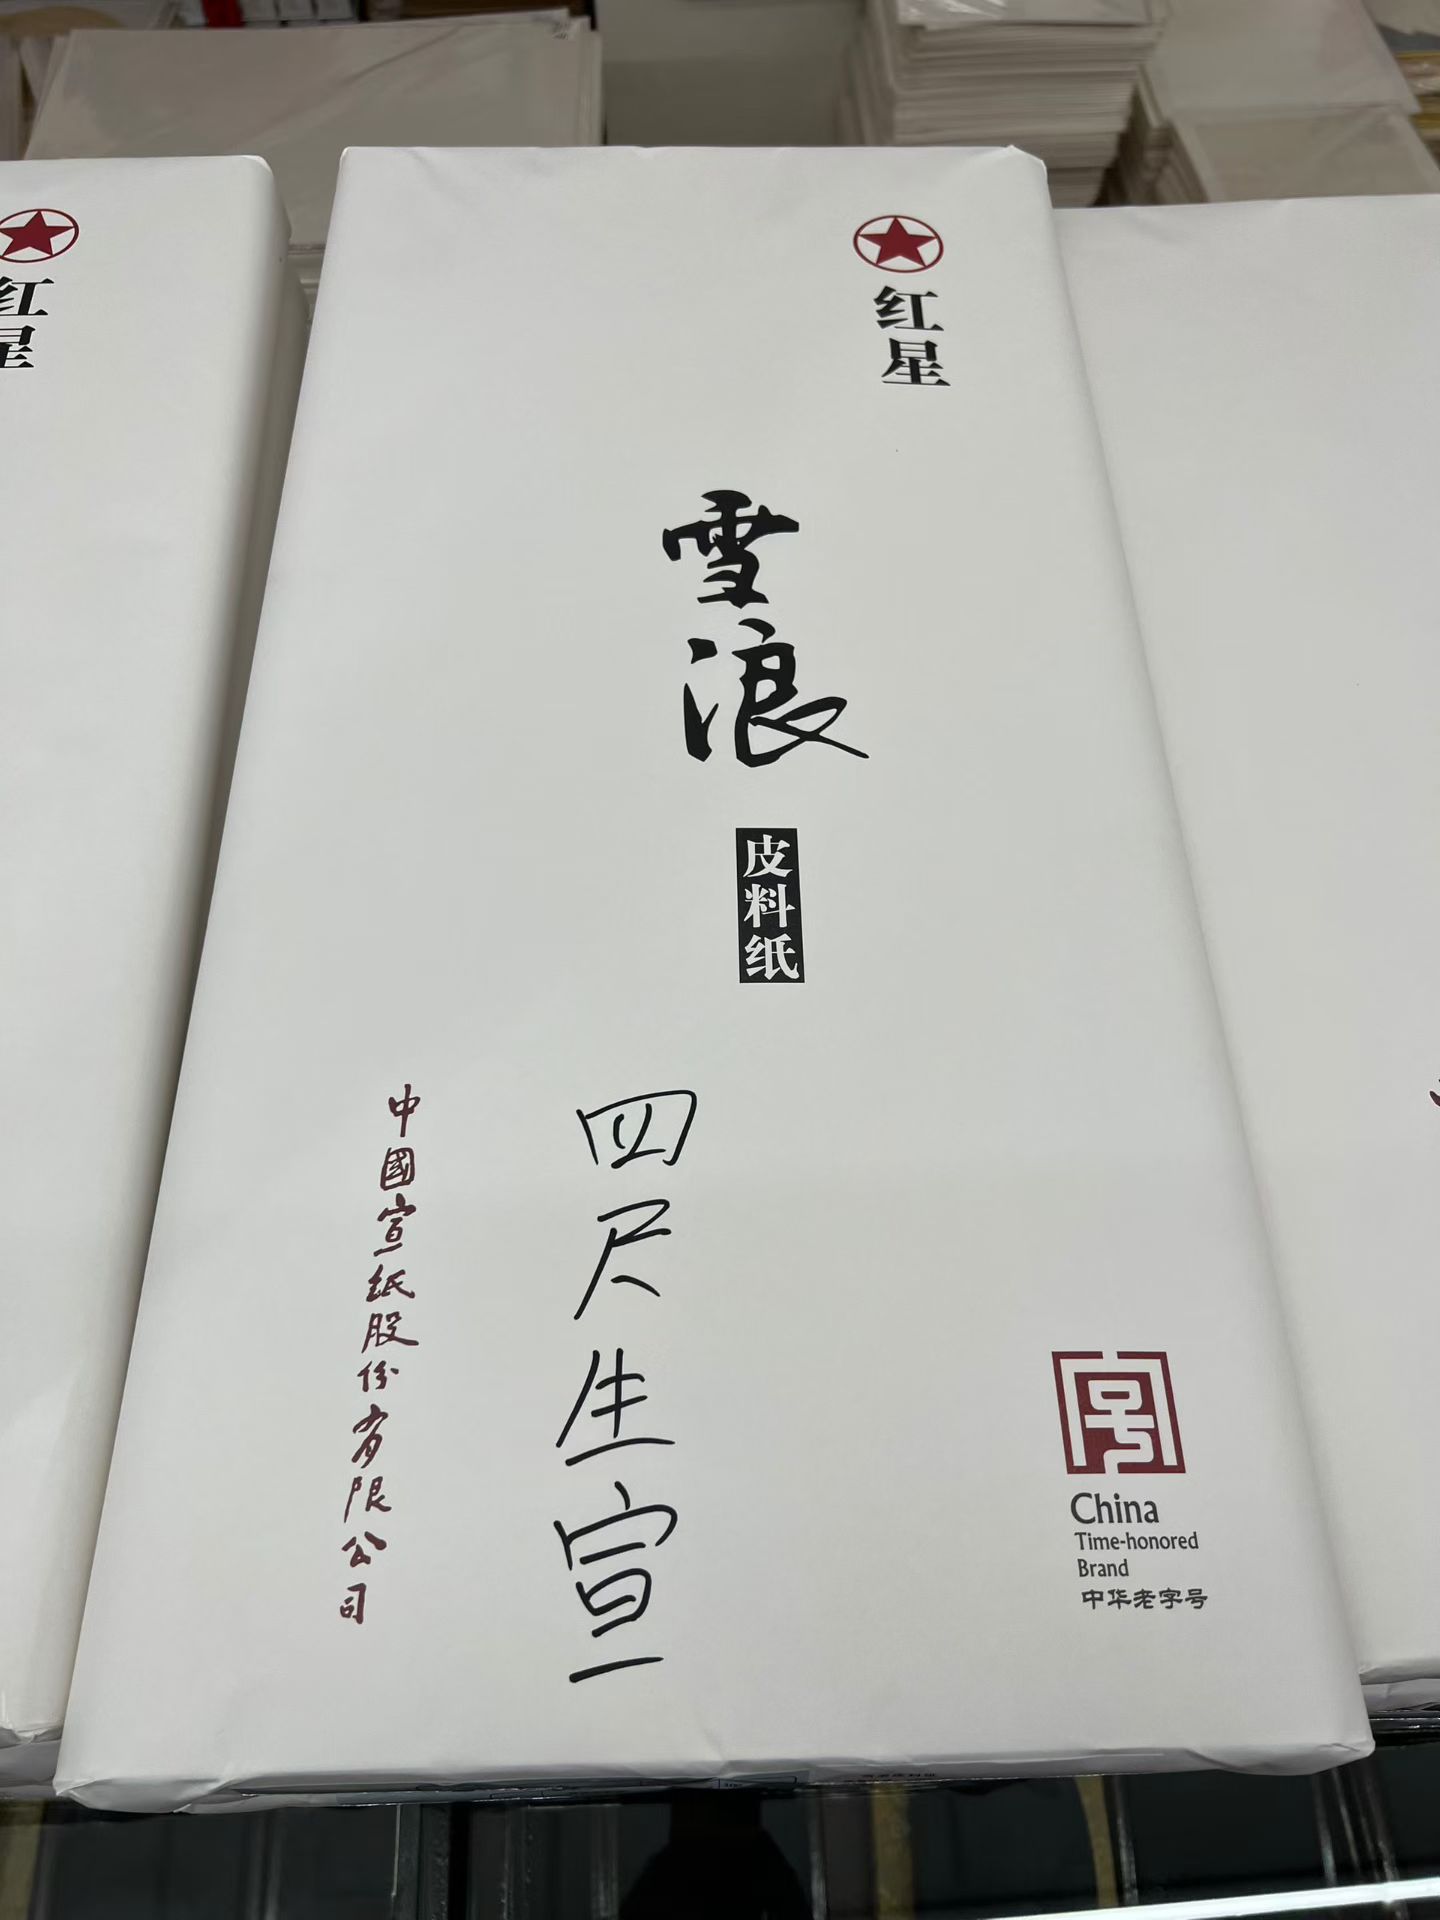 红星
红星
雪浪
皮料纸
四尺生宣
中國宣纸股份有限公司
号
China
Time-honored
Brand
中华老字号